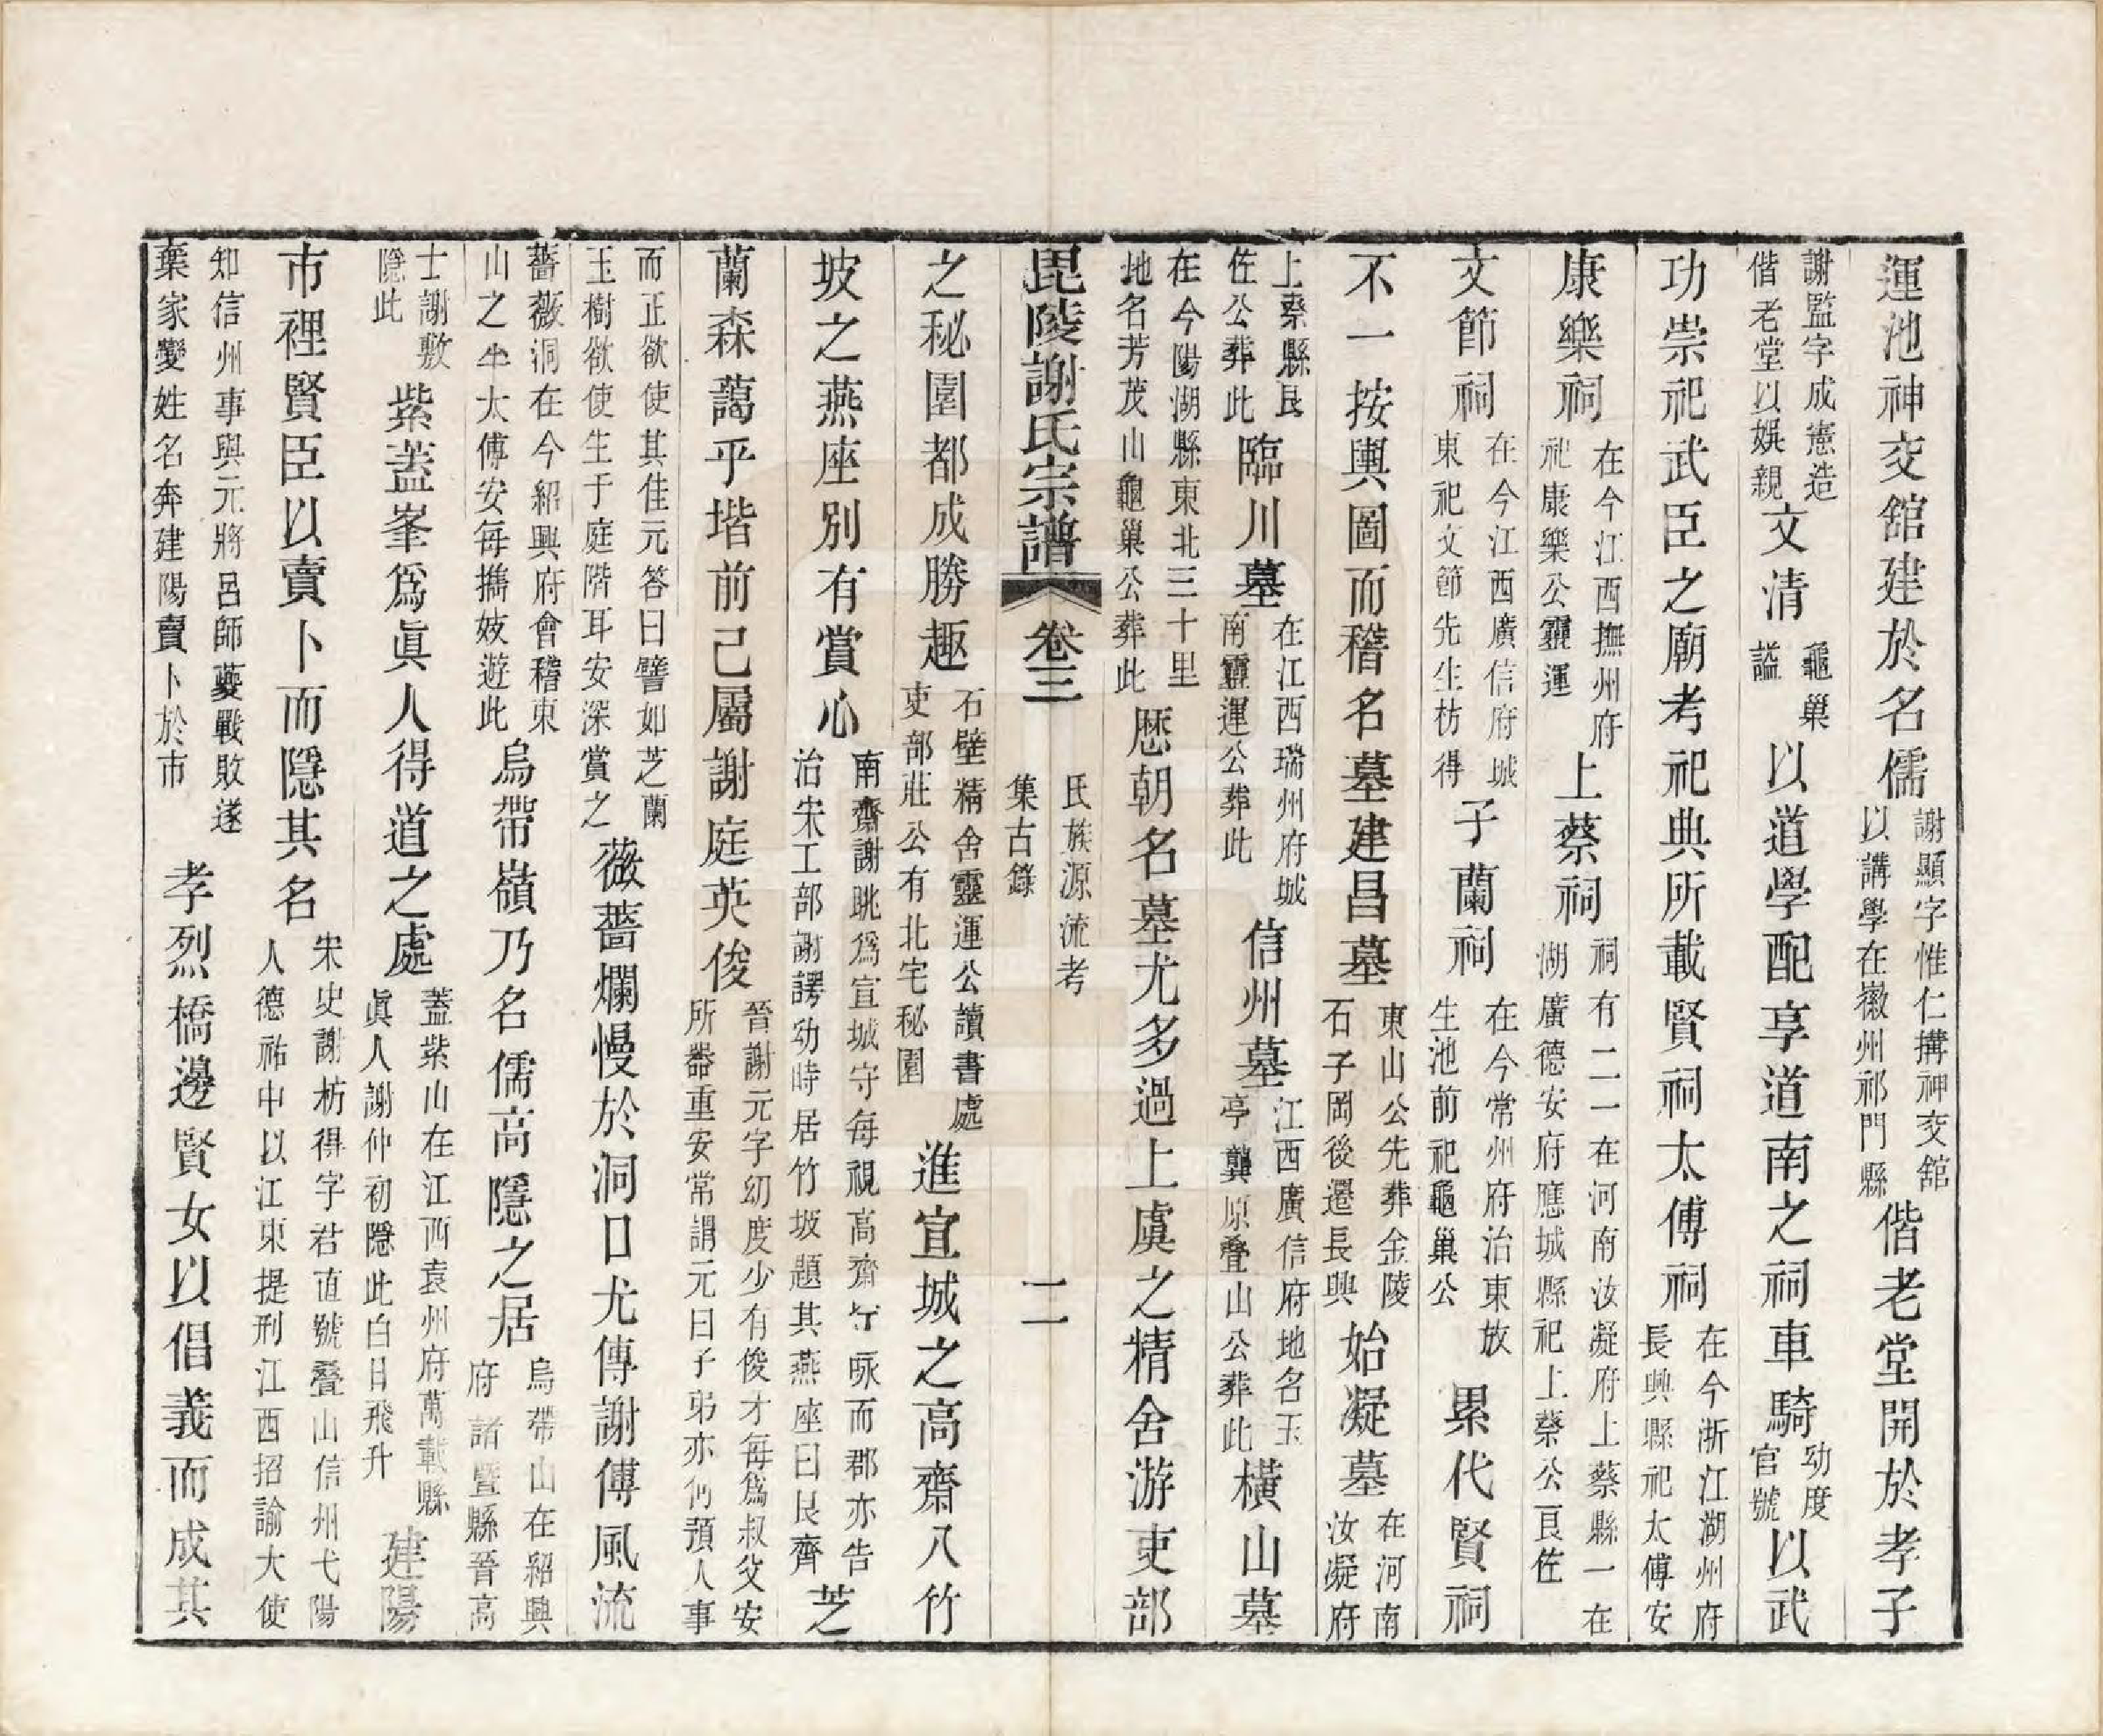 運池神交舘建於名儒謝顯字惟仁搆神交舘以講學在徽州祁門縣偕老堂開於孝子
謝監字成憲造偕老堂以娛親文清龜巢謚以道學配享道南之祠車騎幼度官號以武
功崇祀武臣之廟考祀典所載賢祠太傅祠在今浙江湖州府長興縣祀太傅安
康樂祠在今江西撫州府祀康樂公靈運上蔡祠祠有二一在河南汝凝府上蔡縣一在湖廣德安府應城縣祀上蔡公良佐
文節祠在今江西廣信府城東祀文節先生枋得子蘭祠在今常州府治東放生池前祀龜巢公累代賢祠
不一按輿圖而稽名墓建昌墓東山公先葬金陵石子岡後遷長興始凝墓在河南汝凝府
上蔡縣良佐公葬此臨川墓在江西瑞州府城南靈運公葬此信州墓江西廣信府地名玉亭龔原叠山公葬此橫山墓
在今陽湖縣東北三十里地名芳茂山龜巢公葬此歷朝名墓尤多過上虞之精舍游吏部
毘陵謝氏宗譜 卷三 氏族源流考 集古錄 二
之秘圍都成勝趣石壁精舍靈運公讀書處吏部莊公有北宅秘圍進宜城之高齋八竹
坡之燕座別有賞心南齋謝眺爲宜城守每視高齋吟咏而郡亦告治宋工部謝諤幼時居竹坡題其燕座曰艮齊芝
蘭森藹乎堦前己屬謝庭英俊晉謝元字幼度少有俊才每爲叔父安所器重安常謂元曰子弟亦何預人事
而正欲使其佳元答曰譬如芝蘭玉樹欲使生于庭階耳安深賞之薇薔爛慢於洞口尤傳謝傅風流
薔薇洞在今紹興府會稽東山之半太傅安每擕妓遊此烏帶嶺乃名儒高隱之居烏帶山在紹興府諸暨縣晉高
士謝敷隱此紫蓋峯爲眞人得道之處蓋紫山在江西袁州府萬載縣眞人謝仲初隱此白日飛升建陽
市裡賢臣以賣卜而隱其名宋史謝枋得字君直號叠山信州弋陽人德祐中以江東提刑江西招諭大使
知信州事與元將呂師夔戰敗遂棄家變姓名奔建陽賣卜於市孝烈橋邊賢女以倡義而成其